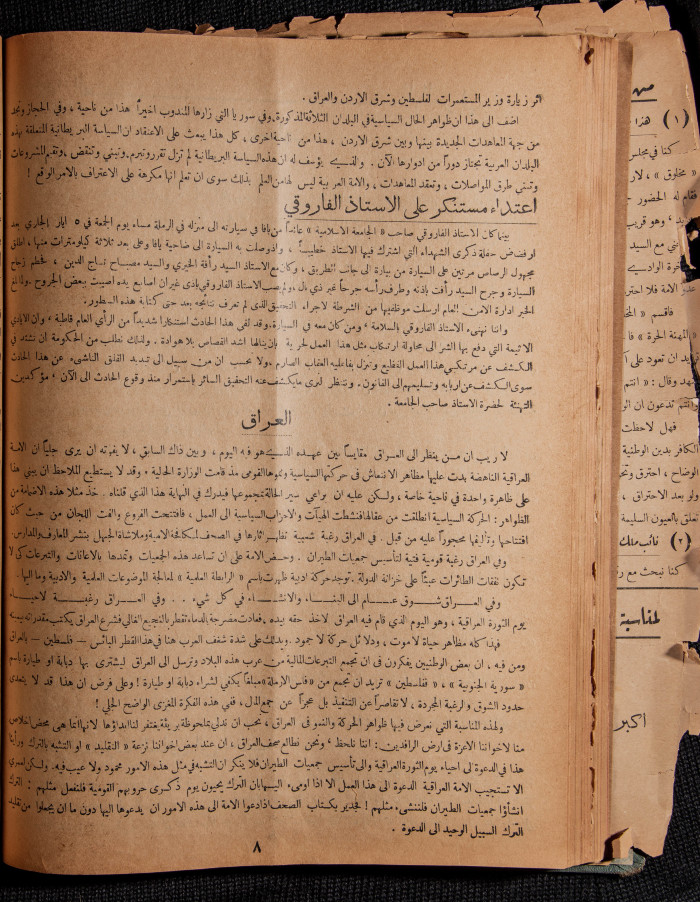 اثر زيارة وزير المستعمرات لفلسطين وشرق الاردن والعراق .
اضف الى هذا ان ظواهر الحال السياسية في البلدان الثلاثة المذكورة وفي سوريا التي زارها المندوب اخيراً هذا من ناحية ، وفي الحجاز ونجد
من جهة المعاهدات الجديدة بينها وبين شرق الاردن ، هذا من ناحية اخرى ، كل هذا يبعث على الاعتقاد ان السياسة البريطانية المتعلقة بهذه
البلدان العربية تجتاز دوراً من ادوارها الآن . والذي يؤسف له ان هذه السياسة البريطانية لم تزل تقرر وتبرم وتبني وتنقض ، وتقيم المشروعات
وتسن طرق المواصلات ، وتعقد المعاهدات ، والامة العربية ليس لها من العلم بذلك سوى ان تعلم انها مكرهة على الاعتراف بالامر الواقع !
اعتداء مستنكر على الاستاذ الفاروقي
بينما كان الاستاذ الفاروقي صاحب « الجامعة الاسلامية » عائداً من يافا في سيارته الى منزله في الرملة مساء يوم الجمعة في ٥ ايار الجاري بعد
ارفضاض حفلة ذكرى الشهداء التي اشترك فيها الاستاذ خطيباً ، واذ وصلت به السيارة الى ضاحية يافا وعلى بعد ثلاثة كيلومترات منها ، اطلق
مجهول الرصاص مرتين على السيارة من بيارة الى جانب الطريق ، وكان مع الاستاذ السيد رأفة الخيري والسيد مصباح تاج الدين ، فحطم زجاج
السيارة وجرح السيد رأفت باذنه وطرف رأسه جرحاً غير ذي بال ولم يصب الاستاذ الفاروقي باذى غير ان اصابع يده اصيبت ببعض الجروح . ولما بلغ
الخبر ادارة الامن العام ارسلت موظفيها من الشرطة لاجراء التحقيق الذي لم تعرف نتائجه بعد حتى كتابة هذه السطور .
واننا نهنىء الاستاذ الفاروقي بالسلامة ، ومن كان معه في السيارة ، وقد لقى هذا الحادث استنكاراً شديداً من الرأي العام قاطبة ، وان الايادي
الاثيمة التي دفع بها الشر الى محاولة ارتكاب مثل هذا العمل لحرية بان ينالها اشد القصاص بلا هوادة . ولذلك نطلب من الحكومة ان تشتد في
التكشف عن مرتكبي هذا العمل الفظيع وتنزل بفاعليه العقاب الصارم ، ولا نحسب ان من سبيل الى تبديد القلق الناشىء عن هذا الحادث
سوى الكشف عن اربابه وتسليمهم الى القانون . وننتظر لنرى ما يكشف عنه التحقيق السائر باستمرار منذ وقوع الحادث الى الآن ، مؤكدين
التهنئة لحضرة الاستاذ صاحب الجامعة .
العراق
لا ريب ان من ينظر الى العراق مقايساً بين عهده الذي هو فيه اليوم ، وبين ذاك السابق ، لا يفوته ان يرى جلياً ان الامة
العراقية الناهضة بدت عليها مظاهر الانتعاش في حركتها السياسية ونموها القومي مذ قامت الوزارة الحالية . وقد لا يستطيع الملاحظ ان يبني هذا
على ظاهرة واحدة في ناحية خاصة ، ولكن عليه ان يراعي سير الحالة بمجموعها فيدرك في النهاية هذا الذي قلناه . خذ مثلا هذه الاضمامة من
الظواهر : الحركة السياسية انطلقت من عقالها فنشطت الهيآت والاحزاب السياسية الى العمل ، فافتتحت الفروع والفت اللجان من حيث كان
افتتاحها وتأليفها محجوراً عليه من قبل . في العراق رغبة شعبية تظهر آثارها في الصحف لمكافحة الامية وملاشاة الجهل بنشر المعارف والمدارس
وفي العراق رغبة قومية فتية لتأسيس جمعيات الطيران . وحض الامة على ان تساعد هذه الجمعيات وتمدها بالاعانات والتبرعات كي لا
تكون نفقات الطائرات عبئاً على خزانة الدولة . توجد حركة ادبية ظهرت باسم « الرابطة العلمية » لمعالجة الموضوعات العلمية والادبية وما اليها .
وفي العراق شوق عام الى البناء والانشاء في كل شيء . . وفي العراق رغبة لاحياء
يوم الثورة العراقية ، وهو اليوم الذي قام فيه العراق لاخذ حقه بيده ، فعادت مضرجة بالدماء تقطر بالنجيع الغالي فشرع العراق يكتب مقدراته بيمينه
فهذا كله مظاهر حياة لا موت ، ودلائل حركة لا جمود . ويدلك على شدة شغف العرب هنا في هذا القطر البائس – فلسطين – بالعراق
ومن فيه ، ان بعض الوطنيين يفكرون في ان تجمع التبرعات المالية من عرب هذه البلاد وترسل الى العراق ليشترى بها دبابة او طيارة باسم
« سورية الجنوبية » ، « ففلسطين » تريد ان تجمع من « فلس الارملة » مبلغاً يكفي لشراء دبابة او طيارة ! وعلى فرض ان هذا قد لا يتعدى
حدود الشوق والرغبة المجردة ، لا تقاصراً عن التنفيذ بل عجزاً عن جمع المال ، ففي هذه الفكرة المغزى الواضح الجلي !
ولهذه المناسبة التي نعرض فيها ظواهر الحركة والنمو في العراق ، نحب ان ندلي بملحوظة بريئة يغتفر لنا ابداؤها لانها اتنا هي محض اخلاص
منا لاخواننا الاعزة في ارض الرافدين : اننا نلحظ ، ونحن نطالع صحف العراق ، ان عند بعض اخواننا نزعة « التقليد » او التشبه بالترك ورأينا
هذا في الدعوة الى احياء يوم الثورة العراقية والى تأسيس جمعيات الطيران فلا ينكر ان التشبه في مثل هذه الامور محمود ولا عيب فيه . ولكن لعمري
الا تستجيب الامة العراقية الدعوة الى هذا العمل الا اذا اومىء اليها بان الترك يحيون يوم ذكرى حروبهم القومية فلنفعل مثلهم : الترك
انشأوا جمعيات الطيران فلننشىء مثلهم ! فجدير بكتاب الصحف اذا دعوا الامة الى هذه الامور ان يدعوها اليها دون ما ان يجعلوا من تقليد
الترك السبيل الوحيد الى الدعوة .
٨
( ١ ) هذا
كنا في مجلس
« مخلوق » ، لار
فقام له الحضور
فاقسم « الخ
« المهنة الحرة » فا
تريد ان تعود على ا
وانتم تدعون ان الو
فهل لاحظت
الكافر بدين الوطنية
الوضاح ، احترق وتح
ولو بعد الاحتراق ،
تعلق بالعيون السليمة
( ٢ ) نائب ملك
كنا نبحث مع ر
لمناسبة
اكبر